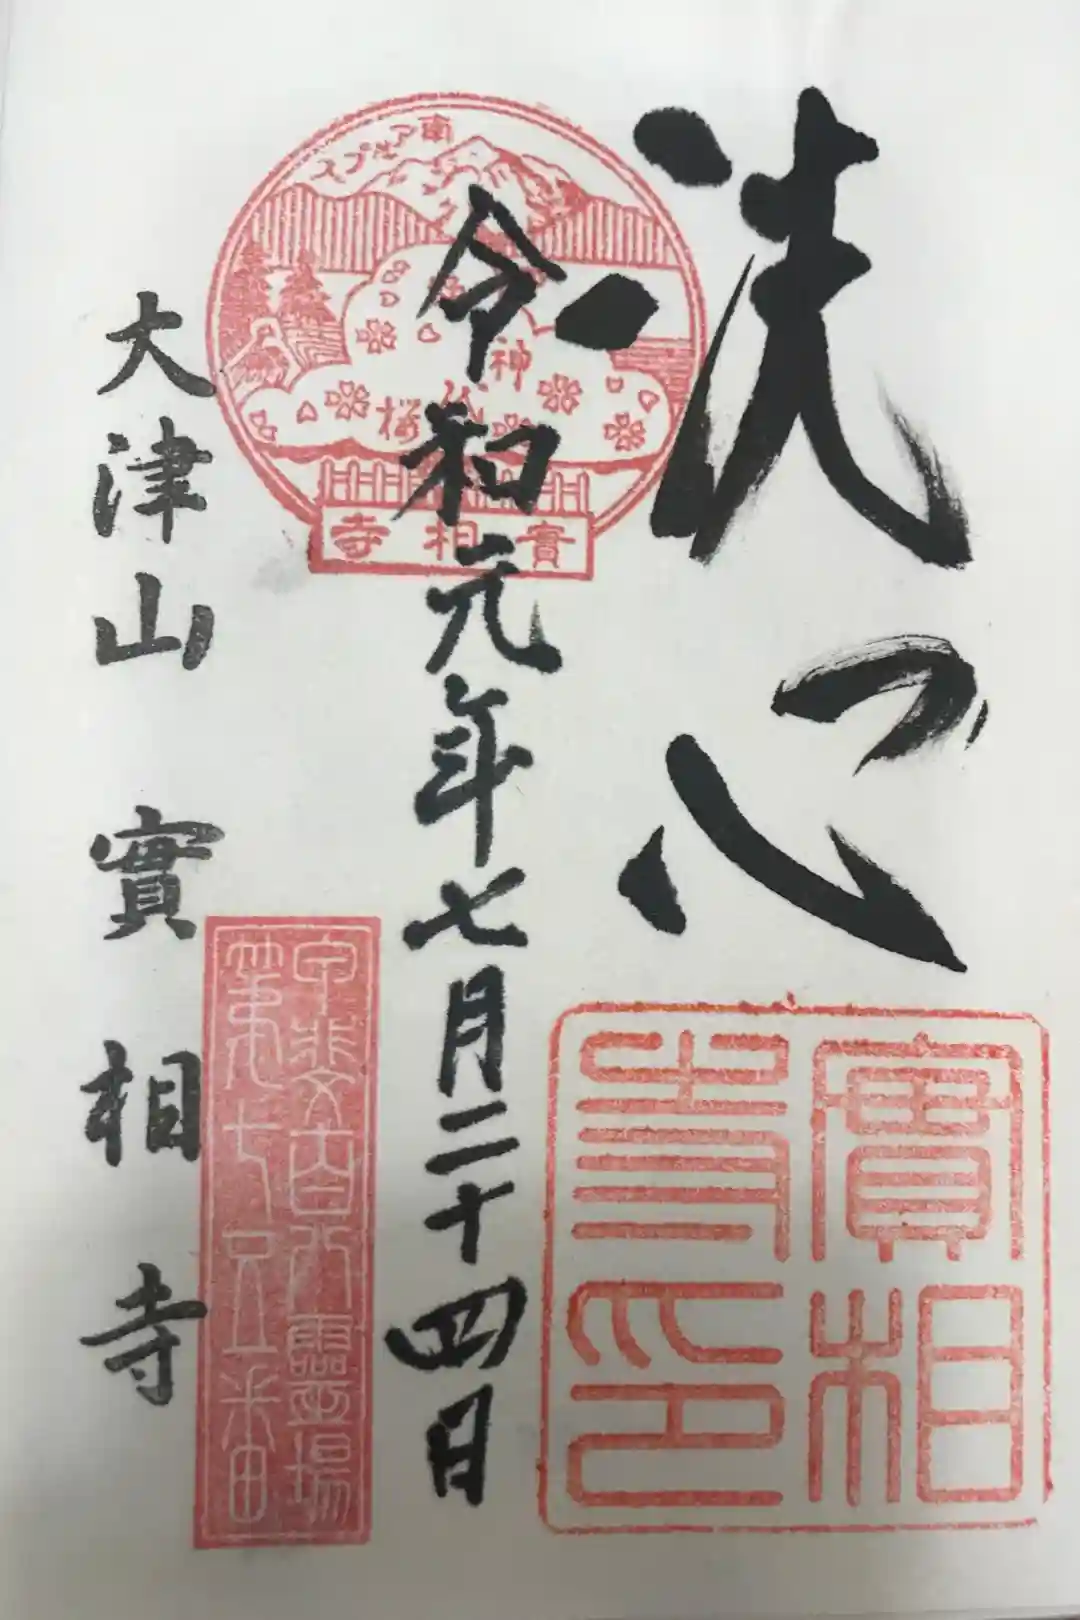 洗心
南アルプス
神代桜
實相寺
令和元年七月二十四日
實相寺印
甲斐百八霊場
第七十五番
大津山 實相寺